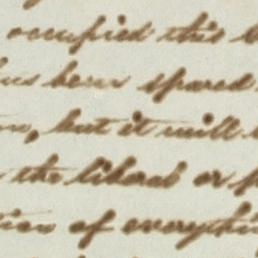 occupied this
been spared
but it will
the liberal or
of everything